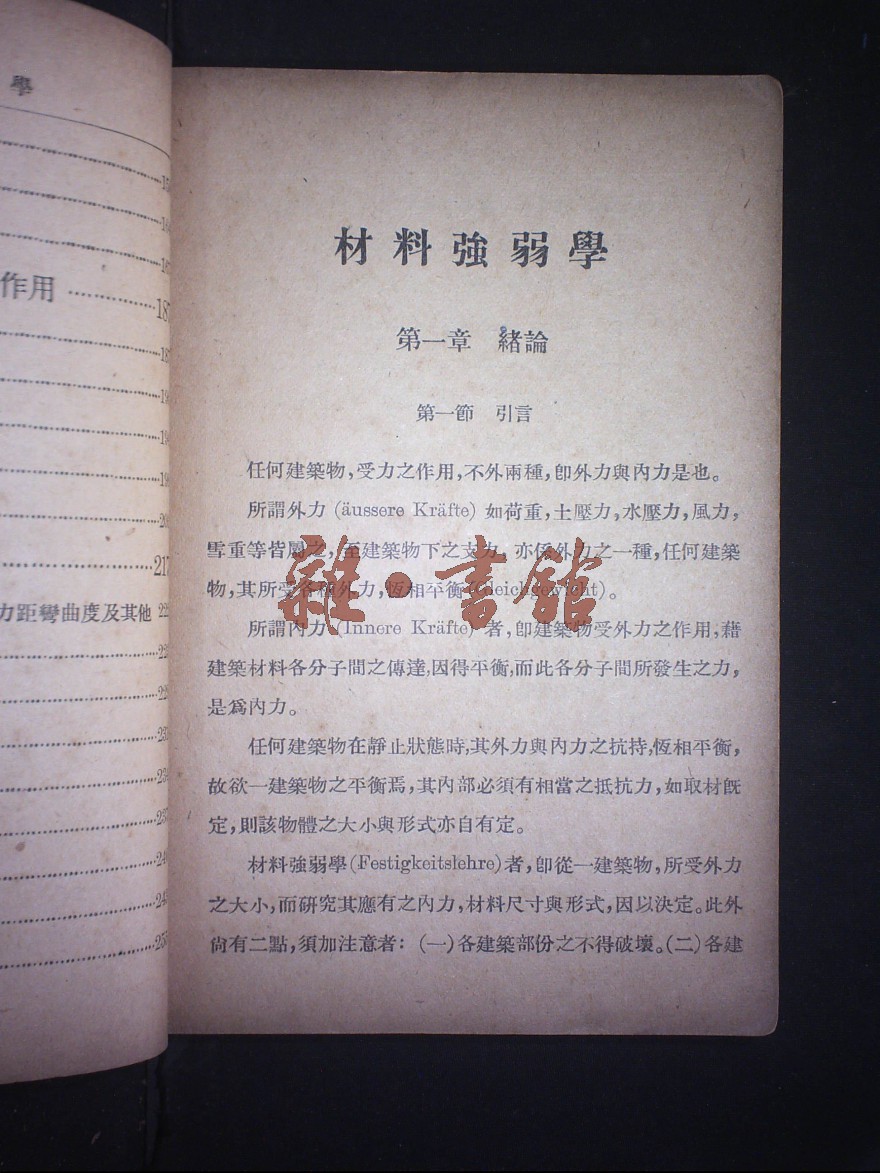 學
作用 ……187
217
力距彎曲度及其他
材料強弱學
第一章 緒論
第一節 引言
任何建築物,受力之作用,不外兩種,卽外力與內力是也。
所謂外力 (äussere Kräfte) 如荷重,土壓力,水壓力,風力,
雪重等皆屬之,至建築物下之支力,亦係外力之一種,任何建築
物,其所受各種外力,恆相平衡(Gleichgewicht)。
所謂內力 (Innere Kräfte) 者,卽建築物受外力之作用,藉
建築材料各分子間之傳達,因得平衡,而此各分子間所發生之力,
是爲內力。
任何建築物在靜止狀態時,其外力與內力之抗持,恆相平衡,
故欲一建築物之平衡焉,其內部必須有相當之抵抗力,如取材旣
定,則該物體之大小與形式亦自有定。
材料強弱學(Festigkeitslehre)者,卽從一建築物,所受外力
之大小,而研究其應有之內力,材料尺寸與形式,因以決定。此外
尙有二點,須加注意者: (一)各建築部份之不得破壞。(二)各建
雜·書館